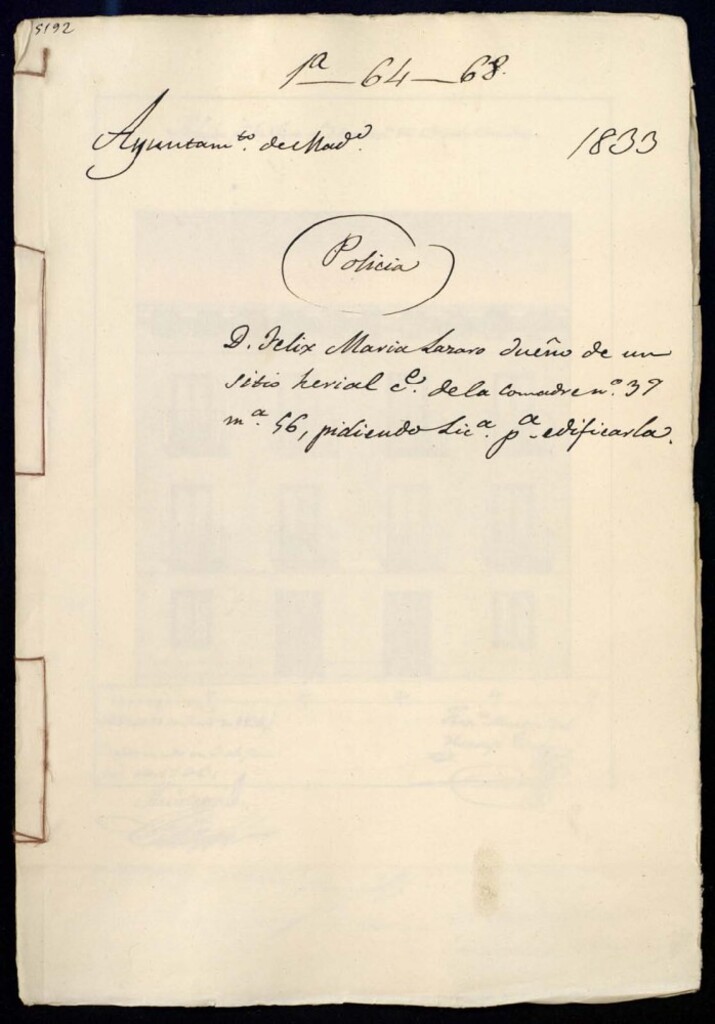 5192
1ª—64—68.
Ayuntam.to de Mad.d
1833
Policia
D. Felix Maria Lazaro dueño de un
sitio herial C.e de la Comadre n.º 37
m.ª 56, pidiendo Lic.ª p.ª edificarla.